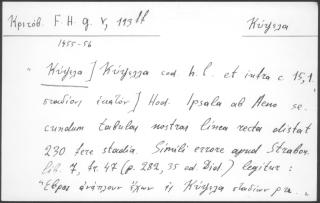 Κριτόβ. F. H. g. V, 113 ff Κύψελα
1455-56
" Κύψελα] Κύψελλα cod h. l. et infra c. 15,1
σταδίων ἑκατόν] Hod. Ipsala ab Aeno se-
cundum tabulas nostras linea recta distat
230 fere stadia. Simili errore apud Strabon.
lib. 7, fr. 47 (p. 282, 35 ed. Did.) legitur:
"Ἕβρος ἀνάπλουν ἔχων εἰς Κύψελα σταδίων ρκ."